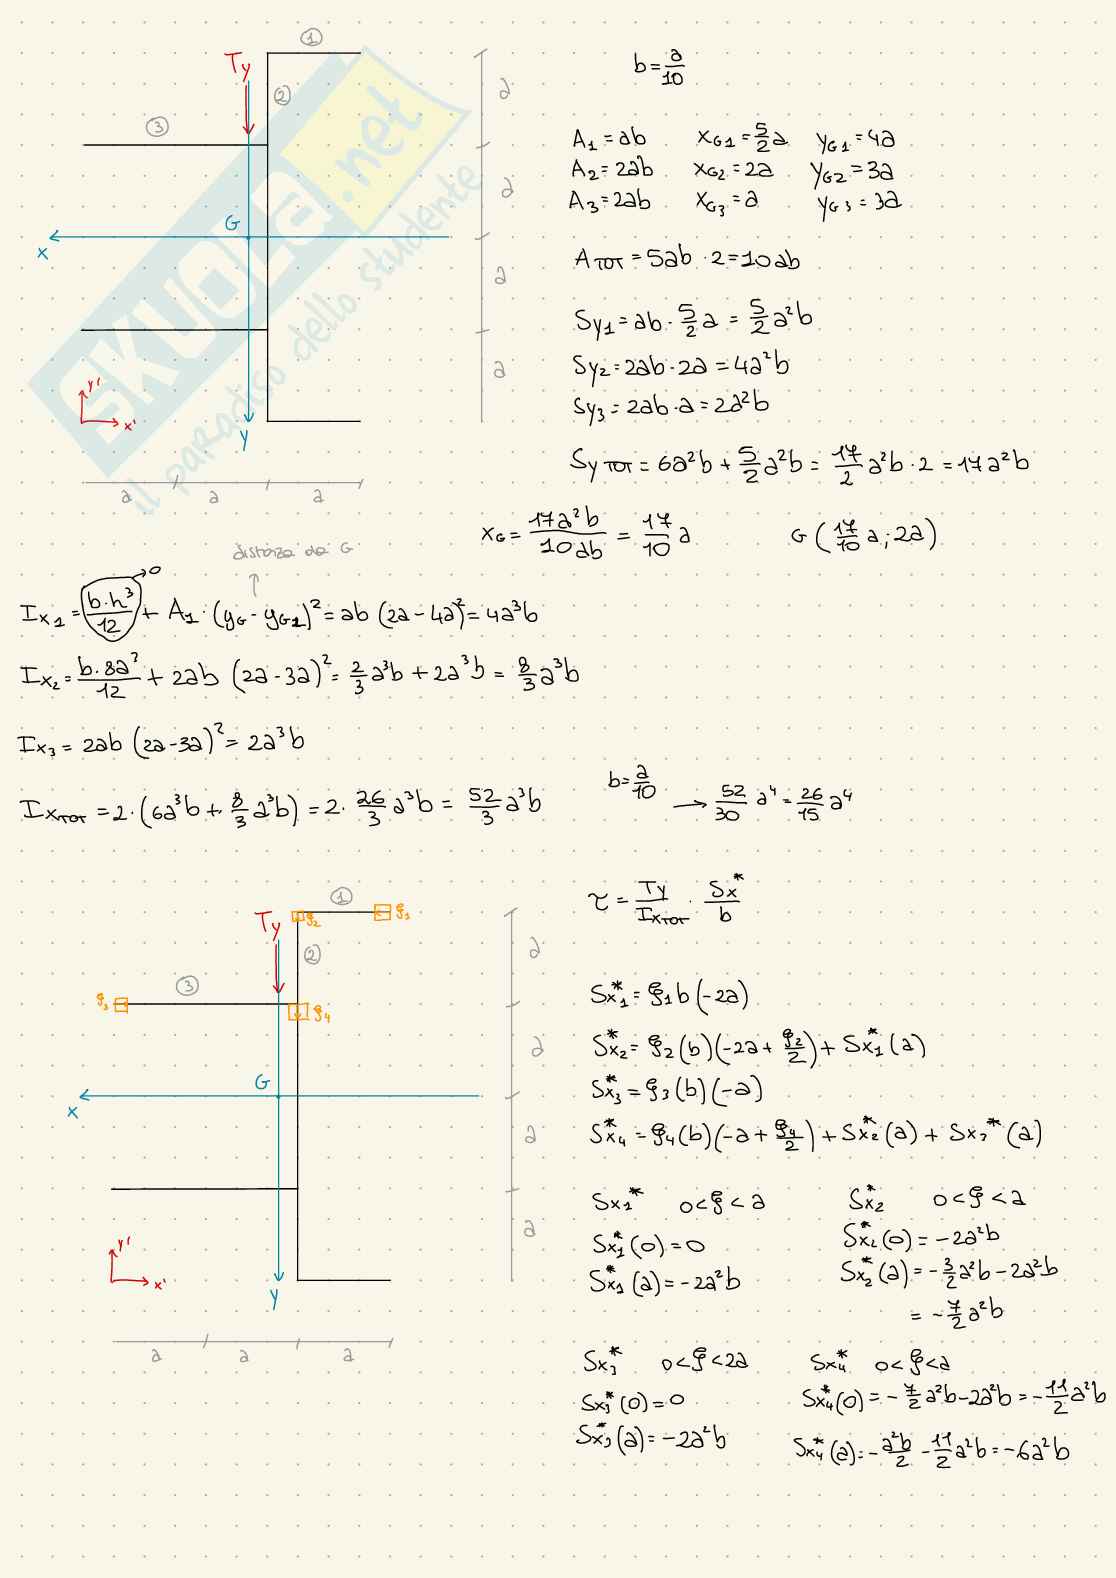 ①
Ty
②
③
G
x
y
y'
x'
a
a
a
a
a a a
SKUOLA.net
il paradiso dello studente
b = a/10
A1 = ab   xG1 = 5/2 a   yG1 = 4a
A2 = 2ab   xG2 = 2a   yG2 = 3a
A3 = 2ab   xG3 = a   yG3 = 3a
ATOT = 5ab · 2 = 10ab
Sy1 = ab · 5/2 a = 5/2 a²b
Sy2 = 2ab · 2a = 4a²b
Sy3 = 2ab · a = 2a²b
SyTOT = 6a²b + 5/2 a²b = 17/2 a²b · 2 = 17a²b
xG = 17a²b/10ab = 17/10 a   G (17/10 a ; 2a)
distanza da G
Ix1 = b·h³/12 → 0 + A1 · (yG - yG1)² = ab (2a - 4a)² = 4a³b
Ix2 = b·8a³/12 + 2ab (2a - 3a)² = 2/3 a³b + 2a³b = 8/3 a³b
Ix3 = 2ab (2a - 3a)² = 2a³b
IxTOT = 2 · (6a³b + 8/3 a³b) = 2 · 26/3 a³b = 52/3 a³b   b = a/10 → 52/30 a⁴ = 26/15 a⁴
①
Ty
ξ2
ξ1
②
③
ξ3
ξ4
G
x
y
y'
x'
a
a
a
a
a a a
τ = Ty/IxTOT · Sx*/b
Sx1* = ξ1 b (-2a)
Sx2* = ξ2 (b) (-2a + ξ2/2) + Sx1* (a)
Sx3* = ξ3 (b) (-a)
Sx4* = ξ4 (b) (-a + ξ4/2) + Sx2* (a) + Sx3* (a)
Sx1*   0 < ξ < a   Sx2*   0 < ξ < a
Sx1* (0) = 0   Sx2* (0) = -2a²b
Sx1* (a) = -2a²b   Sx2* (a) = -3/2 a²b - 2a²b
= -7/2 a²b
Sx3*   0 < ξ < 2a   Sx4*   0 < ξ < a
Sx3* (0) = 0   Sx4* (0) = -7/2 a²b - 2a²b = -11/2 a²b
Sx3* (a) = -2a²b   Sx4* (a) = -a²b/2 - 11/2 a²b = -6a²b